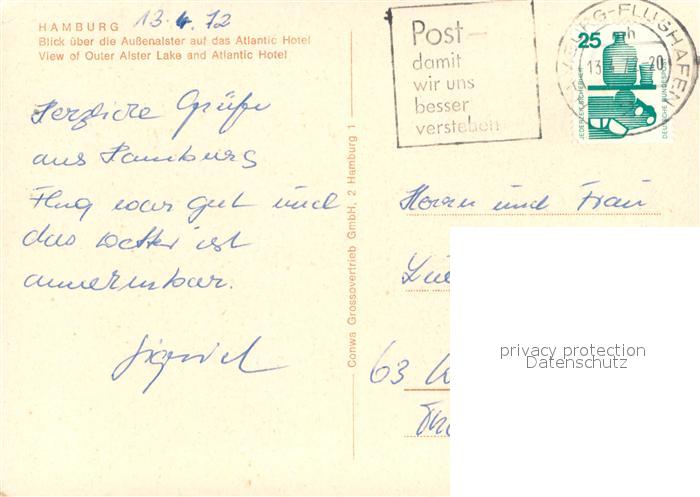 HAMBURG 13.4.72
Blick über die Außenalster auf das Atlantic Hotel
View of Outer Alster Lake and Atlantic Hotel
Post–
damit
wir uns
besser
verstehen
BURG-FLUGHAFEN
13
20
25
JEDERZEIT SICHERHEIT
DEUTSCHE BUNDESPOST
Herzliche Grüße
aus Hamburg
Flug war gut und
das Wetter ist
annehmbar.
Conwa Grossovertrieb GmbH, 2 Hamburg 1
Herrn und Frau
63
privacy protection
Datenschutz